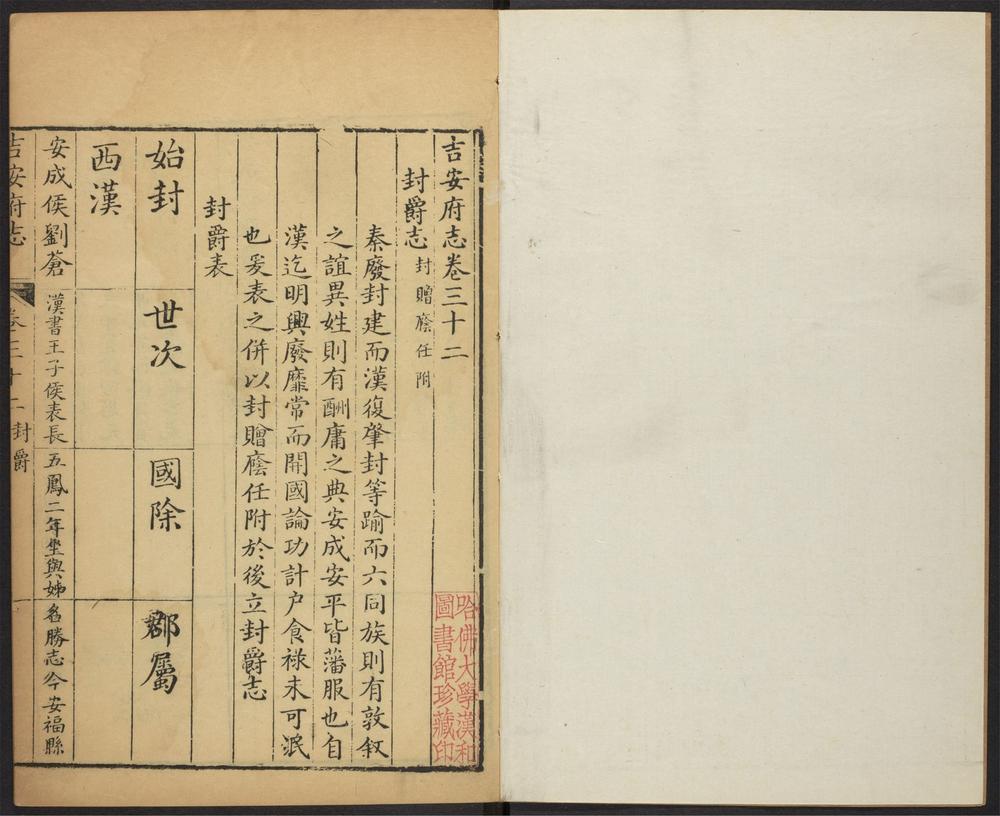 吉安府志卷三十二
封爵志 封贈廕任附
秦廢封建而漢復肇封等踰而六同族則有敦敘
之誼異姓則有酬庸之典安成安平皆藩服也自
漢迄明興廢靡常而開國論功計戶食祿未可泯
也爰表之併以封贈廕任附於後立封爵志
封爵表
始封 世次 國除 郡屬
西漢
安成侯劉蒼 漢書王子侯表長 五鳳二年坐與姊 名勝志今安福縣
吉安府志 卷三十二 封爵
哈佛大學漢和
圖書館珍藏印